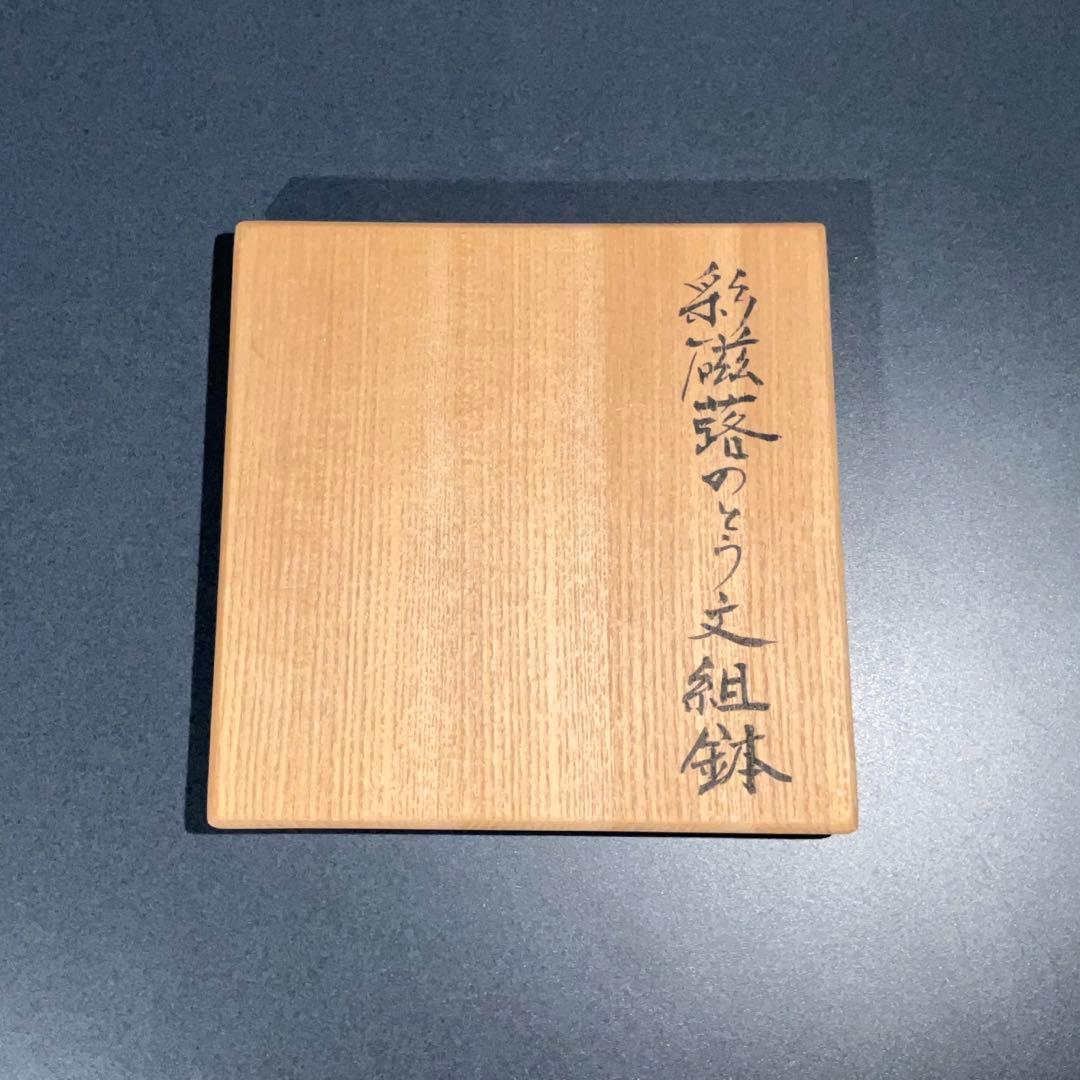 彩磁蕗のとう文組鉢